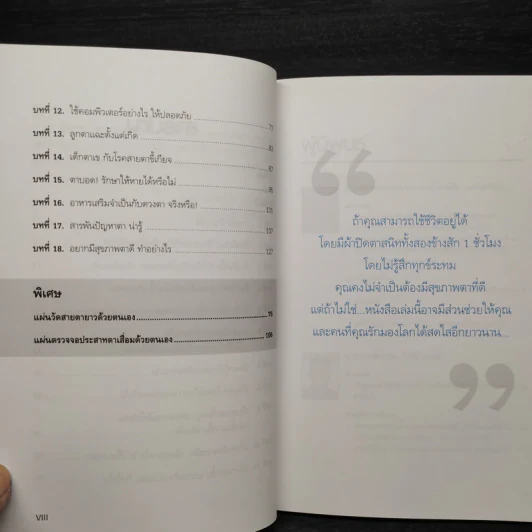 บทที่ 12. ใช้คอมพิวเตอร์อย่างไร ให้ปลอดภัย
บทที่ 13. ลูกตาแฉะตั้งแต่เกิด
บทที่ 14. เด็กตาเข กับโรคสายตาขี้เกียจ
บทที่ 15. ตาบอด! รักษาให้หายได้หรือไม่
บทที่ 16. อาหารเสริมจำเป็นกับดวงตา จริงหรือ!
บทที่ 17. สารพันปัญหาตา น่ารู้
บทที่ 18. อยากมีสุขภาพตาดี ทำอย่างไร 127
พิเศษ
แผ่นวัดสายตายาวด้วยตนเอง
แผ่นตรวจจอประสาทตาเสื่อมด้วยตนเอง 106
VIII
ถ้าคุณสามารถใช้ชีวิตอยู่ได้
โดยมีผ้าปิดตาสนิททั้งสองข้างสัก 1 ชั่วโมง
โดยไม่รู้สึกทุกข์ระทม
คุณคงไม่จำเป็นต้องมีสุขภาพตาที่ดี
แต่ถ้าไม่ใช่...หนังสือเล่มนี้อาจมีส่วนช่วยให้คุณ
และคนที่คุณรักมองโลกได้สดใสอีกยาวนาน...